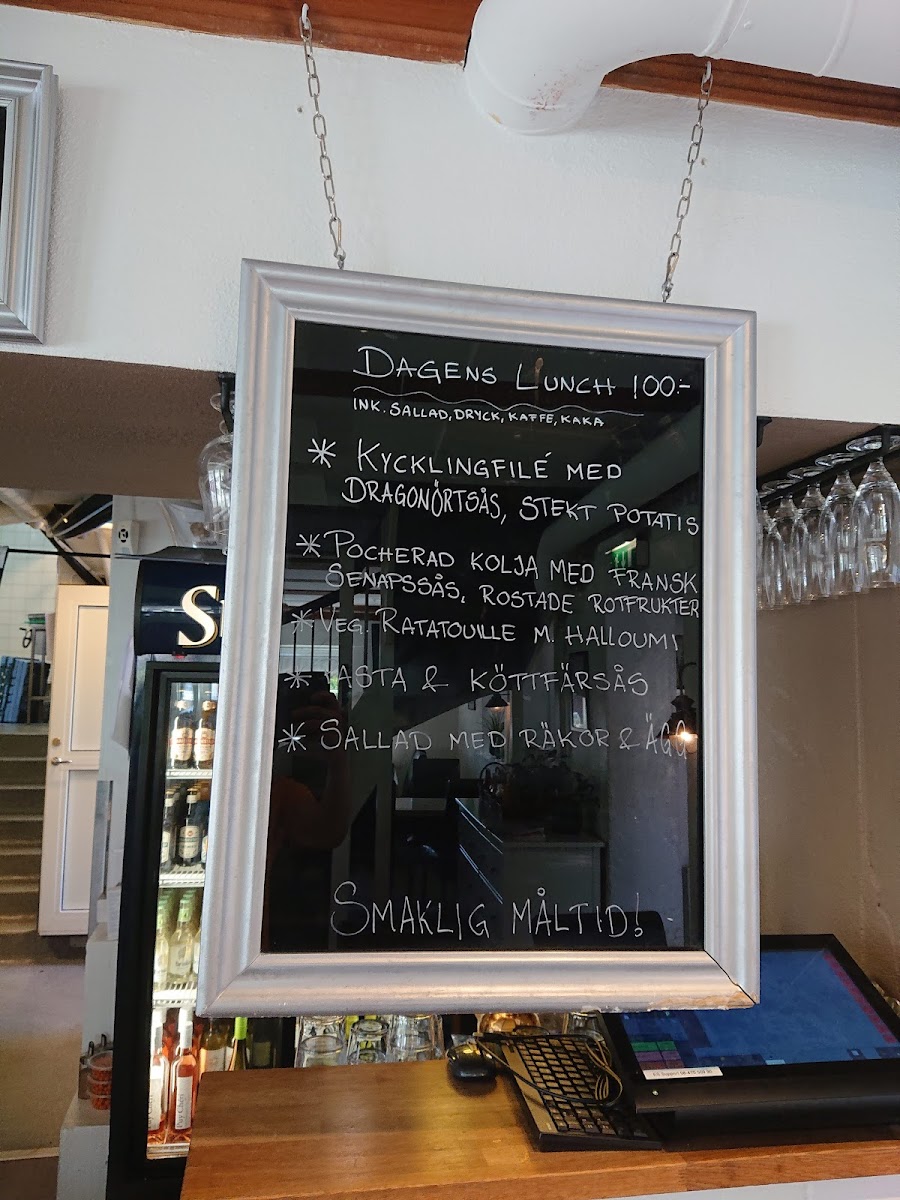 DAGENS LUNCH 100:-
INK. SALLAD, DRYCK, KAFFE, KAKA
* KYCKLINGFILÉ MED
DRAGONÖRTSÅS, STEKT POTATIS
* POCHERAD KOLJA MED FRANSK
SENAPSSÅS, ROSTADE ROTFRUKTER
* VEG. RATATOUILLE M. HALLOUMI
* PASTA & KÖTTFÄRSÅS
* SALLAD MED RÄKOR & ÄGG
SMAKLIG MÅLTID!